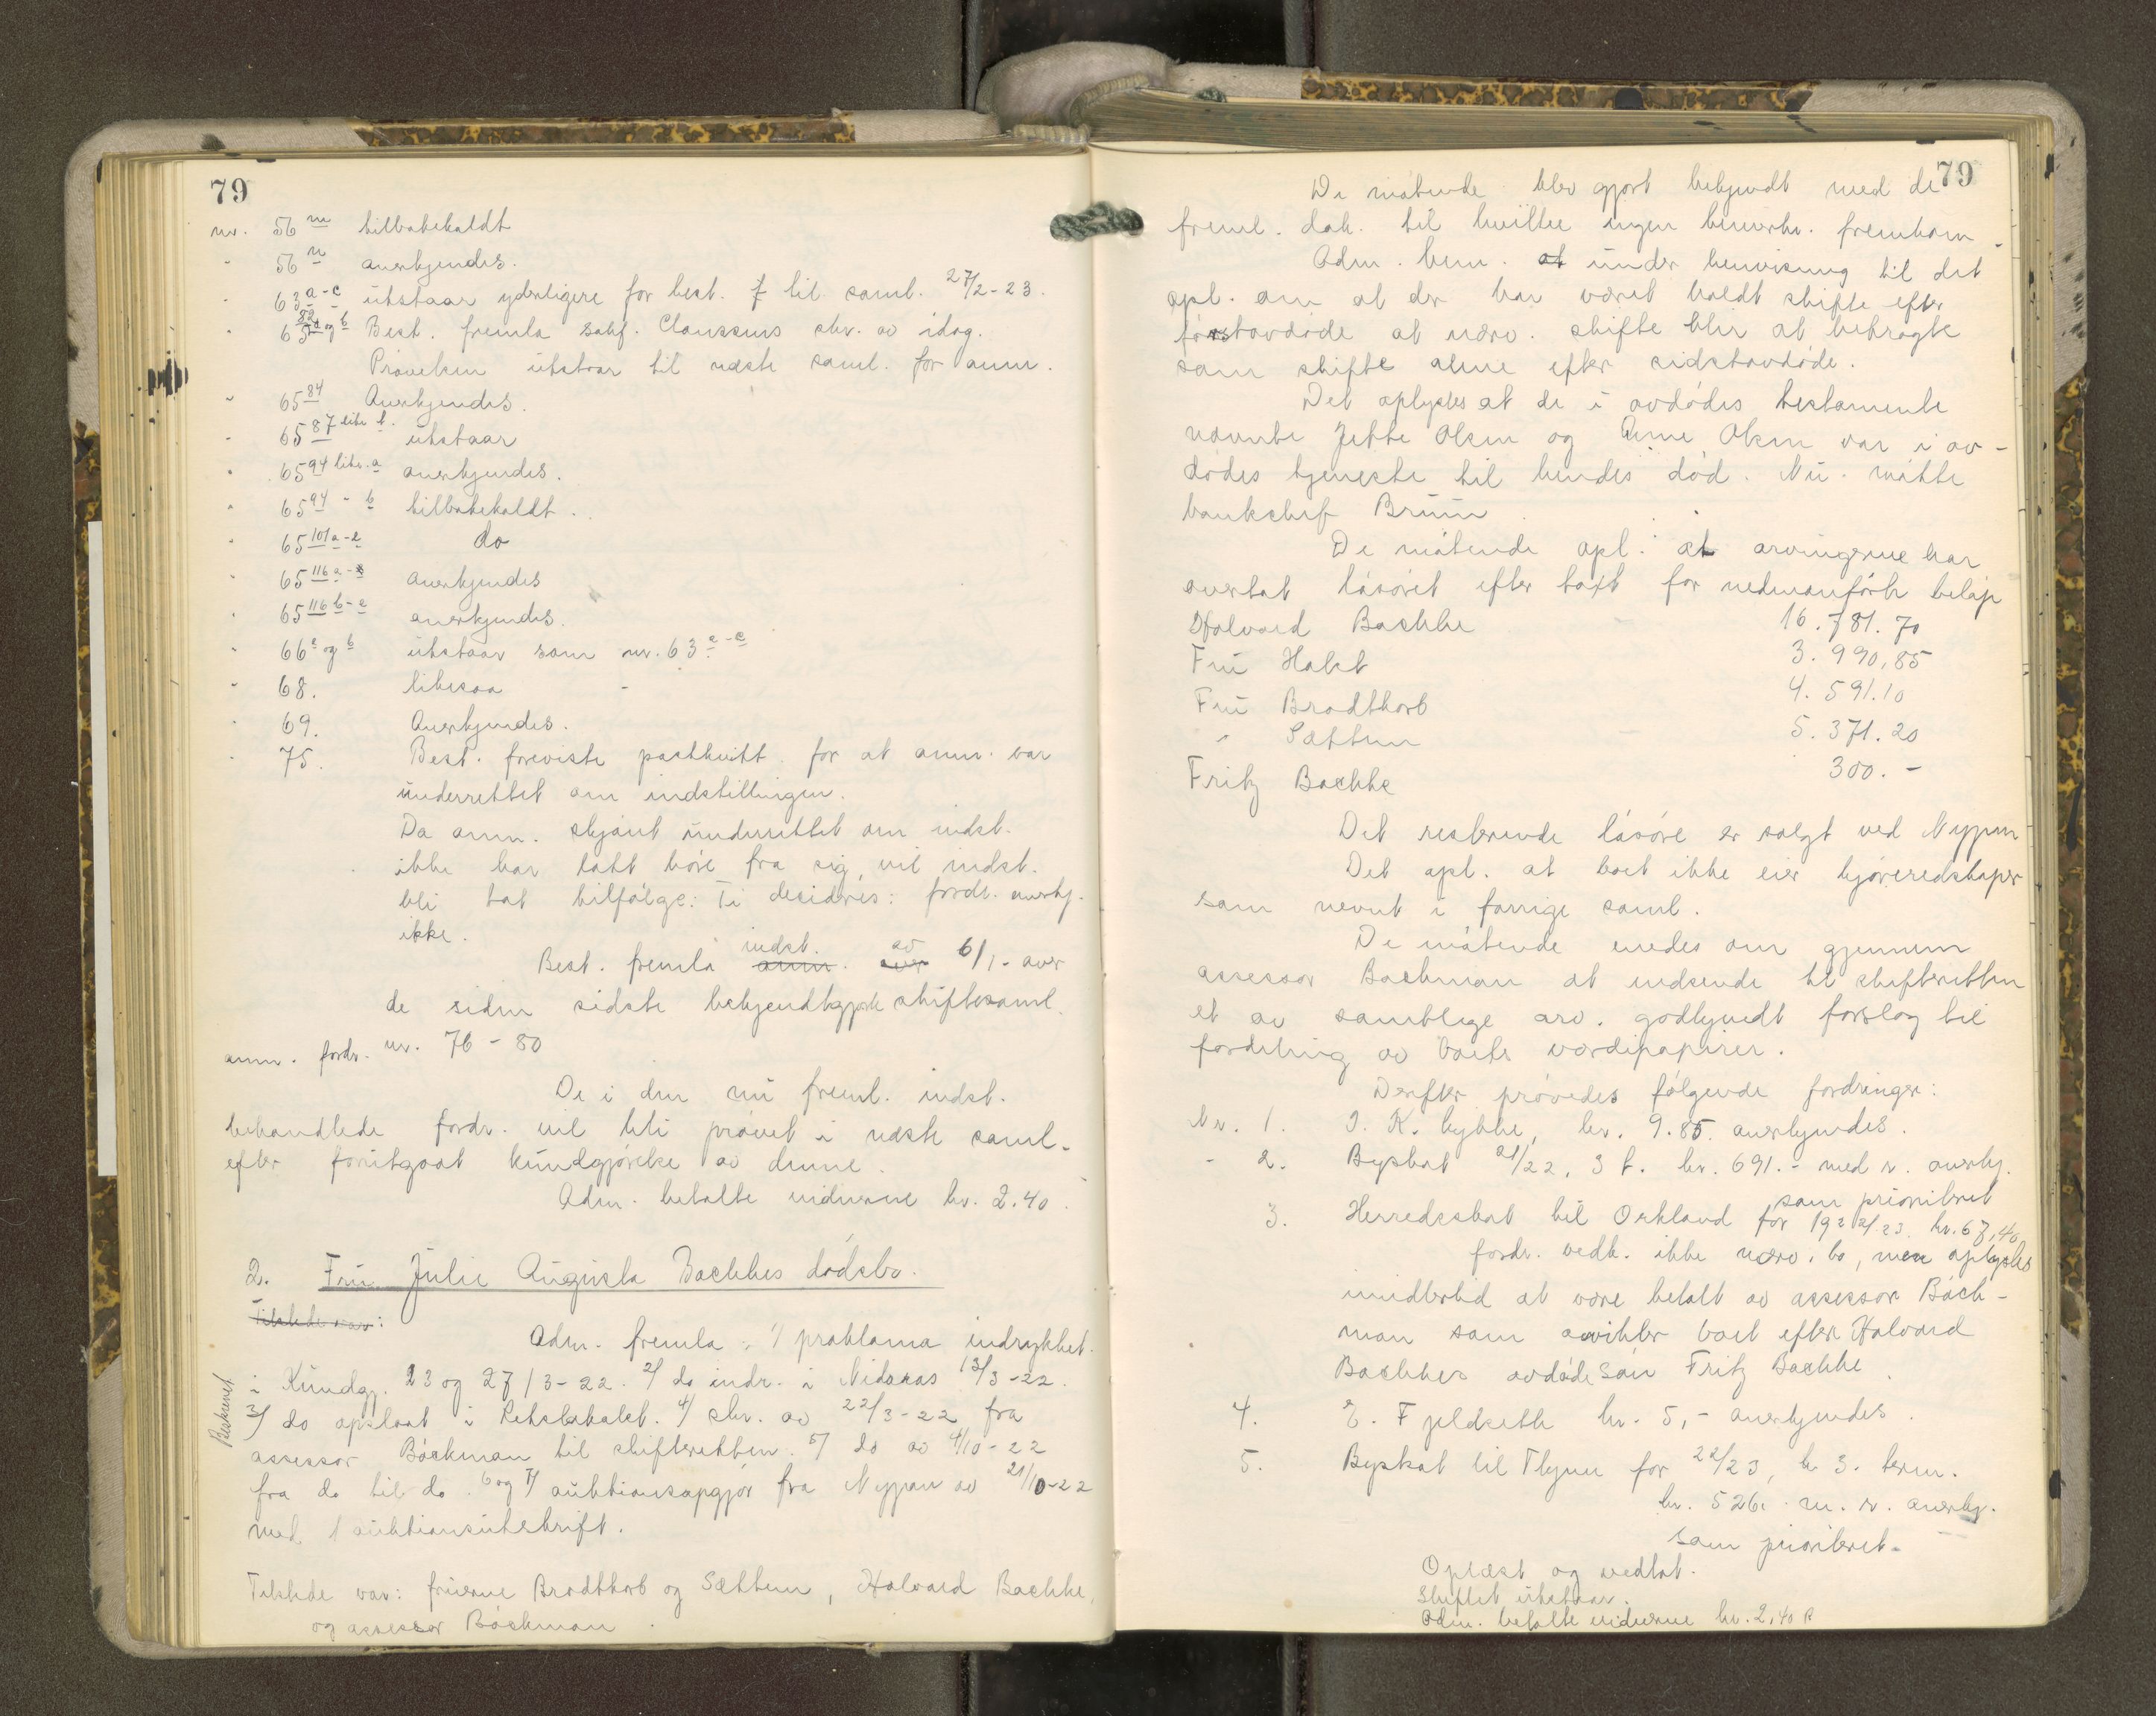 79
nr. 56 m tilbakekaldt
" 56 n anerkjendes.
" 63 a-c utstaar yderligere for best. f til saml. 27/2-23.
" 65 82 a og b Best. fremla sakf. Claussens skr. av idag.
Prøvelsen utstaar til næste saml. for anm.
" 65 84 Anerkjendes.
" 65 87 litr b. utstaar
" 65 94 litr. a anerkjendes.
" 65 94 - b tilbakekaldt.
" 65 101 a-e do
" 65 116 a- anerkjendes
" 65 116 b-e anerkjendes.
" 66 a og b utstaar som nr. 63 a-c
" 68. likesaa -
" 69. Anerkjendes.
" 75. Best. foreviste postkvitt. for at anm. var
underrettet om indstillingen.
Da anm. skjønt underrettet om indst.
ikke har latt høre fra sig, vil indst.
bli tat tilfølge: Ti decideres: fordr. anerkj.
ikke.
Best. fremla anm. indst. over av 6/1- over
de siden sidste bekjendtgjorte skiftesaml.
anm. fordr. nr. 76 - 80
De i den nu freml. indst.
behandlede fordr. vil bli prøvet i næste saml.
efter forutgaat kundgjørelse av denne.
Adm. betalte vidnerne kr. 2.40.
2. Fru Julie Augusta Bachkes dødsbo.
Tilstede var:
Adm. fremla: 1/ proklama indrykket
i Kundgj. 23 og 27/3-22. 2/ do indr. i Nidaros 13/3-22.
Beskrevet
3/ do opslaat i Retslokalet. 4/ skr. av 22/3-22 fra
assessor Bøckman til skifteretten. 5/ do av 4/10-22
fra do til do. 6 og 7/ auktionsopgjør fra Nypan av 21/10-22
med 1 auktionsutskrift.
Tilstede var: fruerne Brodtkorb og Sættem, Halvard Bachke,
og assessor Bøckman.
79
De møtende blev gjort bekjendt med de
freml. dok. til hvilke ingen bemerkn. fremkom.
Adm. bem. at under henvisning til det
opl. om at der har været holdt skifte efter
førstavdøde at nærv. skifte blir at betragte
som skifte alene efter sidstavdøde.
Det oplystes at de i avdødes testamente
nævnte Jette Olsen og Anne Olsen var i av-
dødes tjeneste til hendes død. Nu møtte
bankchef Bruun.
De møtende opl. at arvingerne har
overtat løsøret efter takst for nedenanførte beløp
Halvard Bachke 16.781.70
Fru Halst 3.990,85
Fru Brodtkorb 4.591.10
" Sættem 5.371.20
Fritz Bachke 300.-
Det resterende løsøre er solgt ved Nypan
Det opl. at boet ikke eier kjøreredskaper
som nevnt i forrige saml.
De møtende enedes om gjennem
assessor Bøckman at indsende til skifteretten
et av samtlige arv. godkjendt forslag til
fordeling av boets værdipapirer.
Derefter prøvedes følgende fordringer:
Nr. 1. I. K. Lykke, kr. 9.85. anerkjendes.
" 2. Byskat 21/22, 3 t. kr. 691.- med r. anerkj.
som prioriteret
3. Herredsskat til Orkland for 1922/23. kr. 67,40
fordr. vedk. ikke nærv. bo, men oplystes
imidlertid at være betalt av assessor Bøck-
man som avvikler boet efter Halvard
Bachkes avdøde søn Fritz Bachke.
4. E. Fjeldseth kr. 5,- anerkjendes.
5. Byskat til Thjem for 22/23, kr 3. term.
kr. 526. m. r. anerkj.
som prioriteret.
Oplæst og vedtat.
Skiftet utstaar.
Adm. betalte vidnerne kr. 2,40